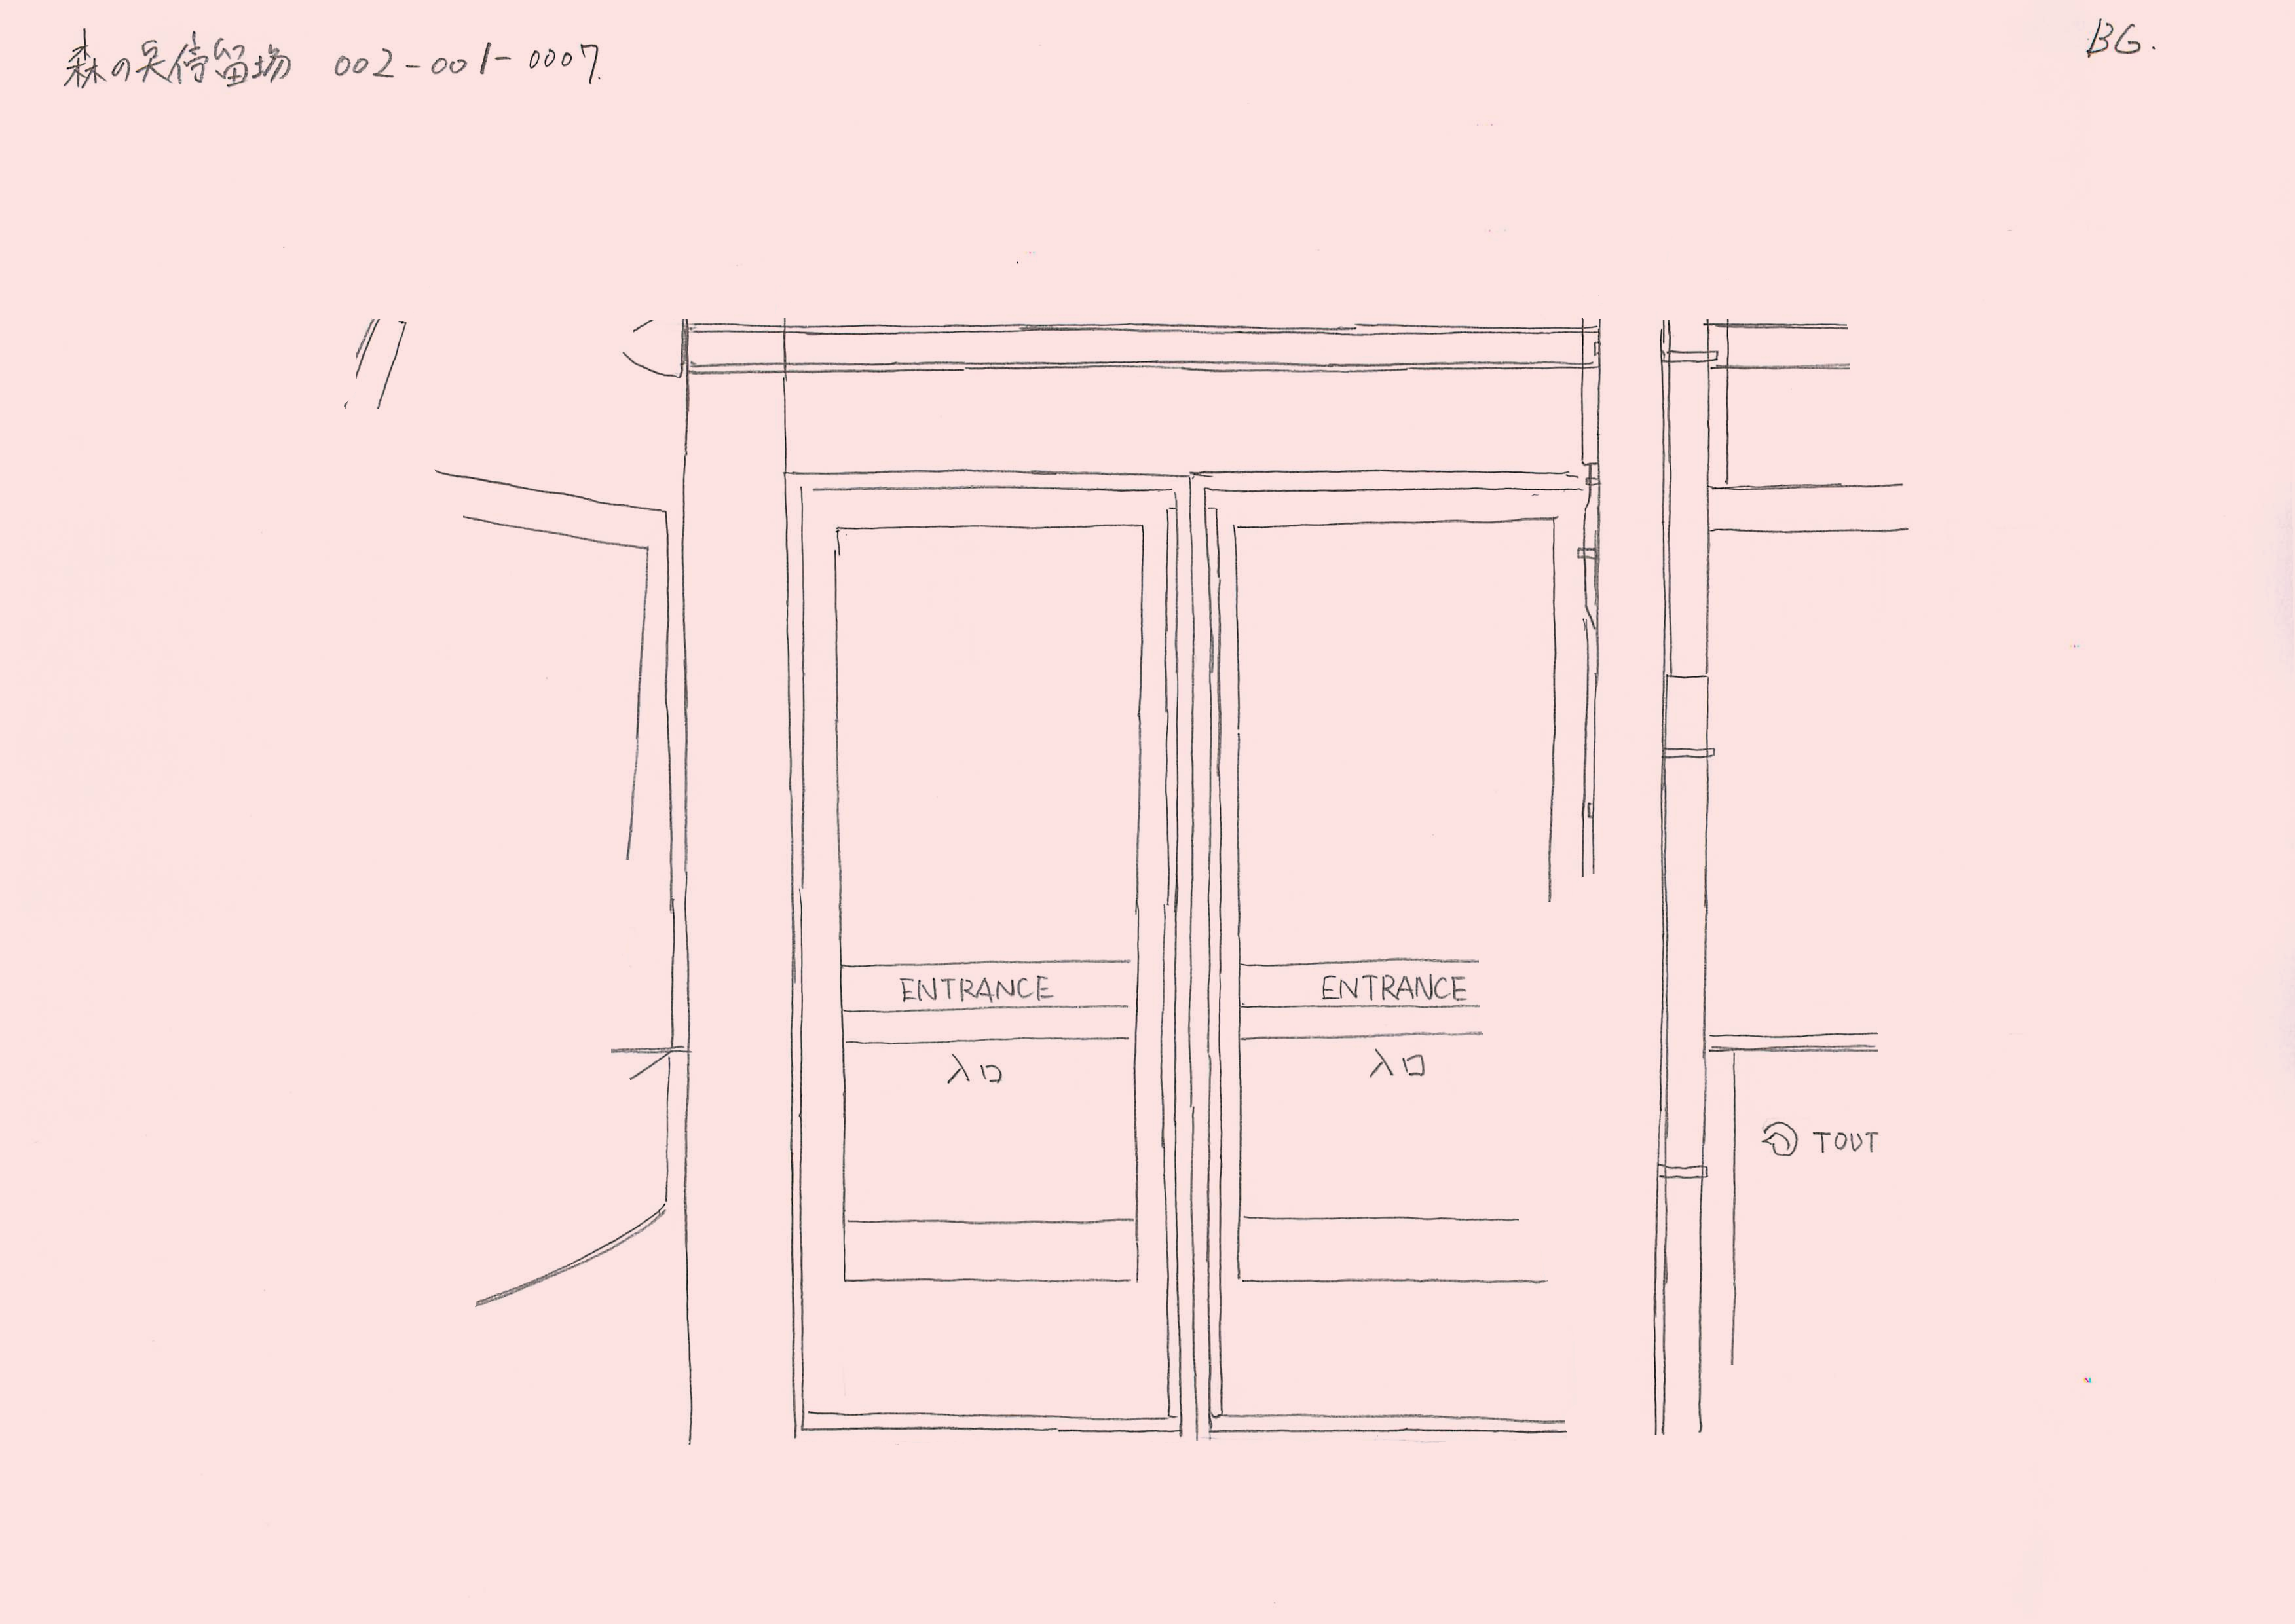 森の奥停留場 002-001-0007.
BG.
ENTRANCE ENTRANCE
入口 入口
TOUT